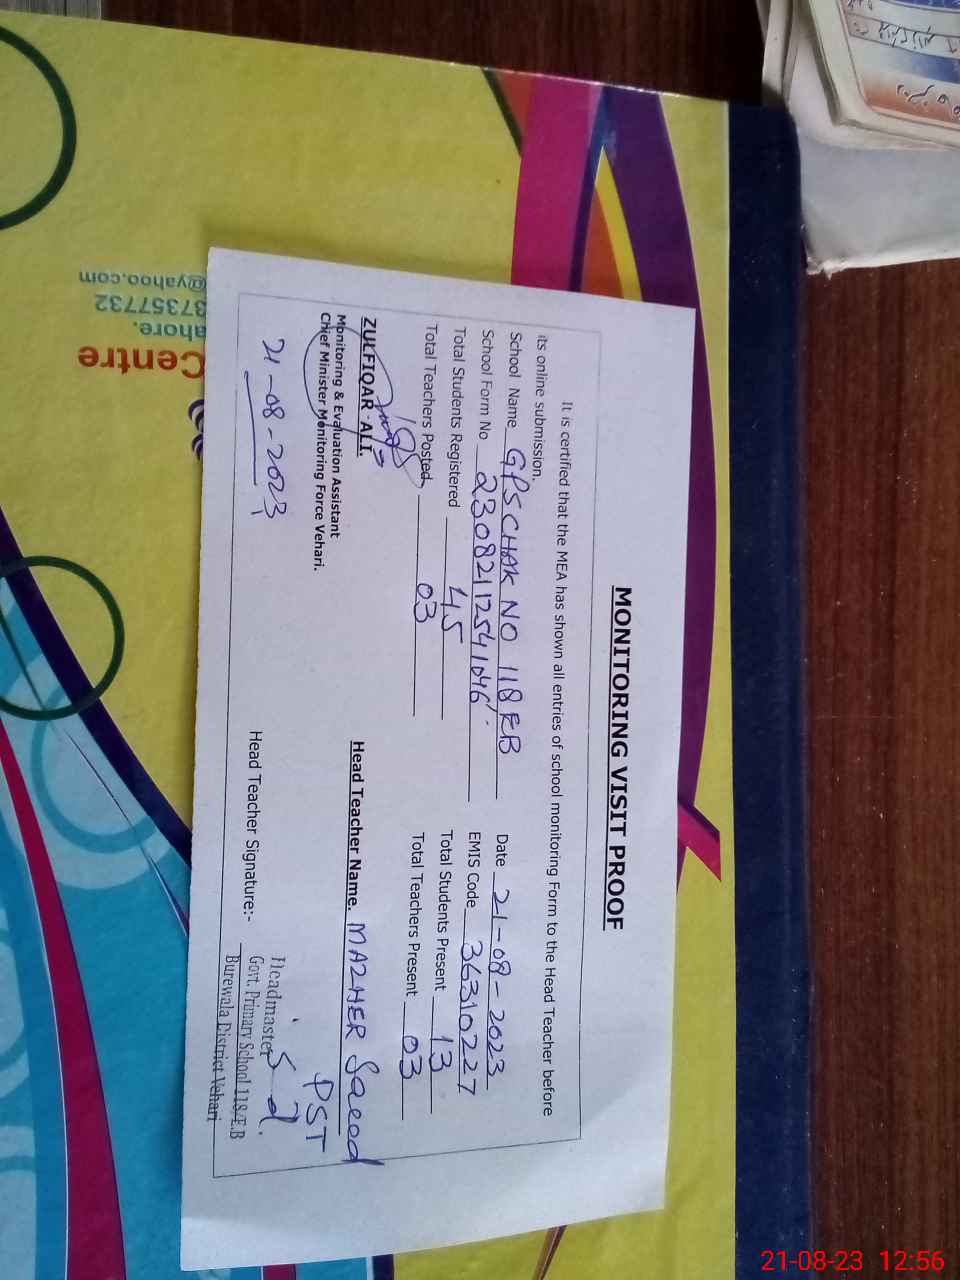 MONITORING VISIT PROOF
It is certified that the MEA has shown all entries of school monitoring Form to the Head Teacher before
its online submission.
School Name GPS CHAK NO 118 EB Date 21-08-2023
School Form No 230821125541046 EMIS Code 36310227
Total Students Registered 45 Total Students Present 13
Total Teachers Posted 03 Total Teachers Present 03
ZULFIQAR ALI. Head Teacher Name. MAZHER Saeed
PST
Monitoring & Evaluation Assistant
Chief Minister Monitoring Force Vehari.
21-08-2023
Head Teacher Signature:-
Headmaster
Govt. Primary School 118/E.B
Burewala District Vehari
Centre
ahore.
37357732
@yahoo.com
21-08-23 12:56